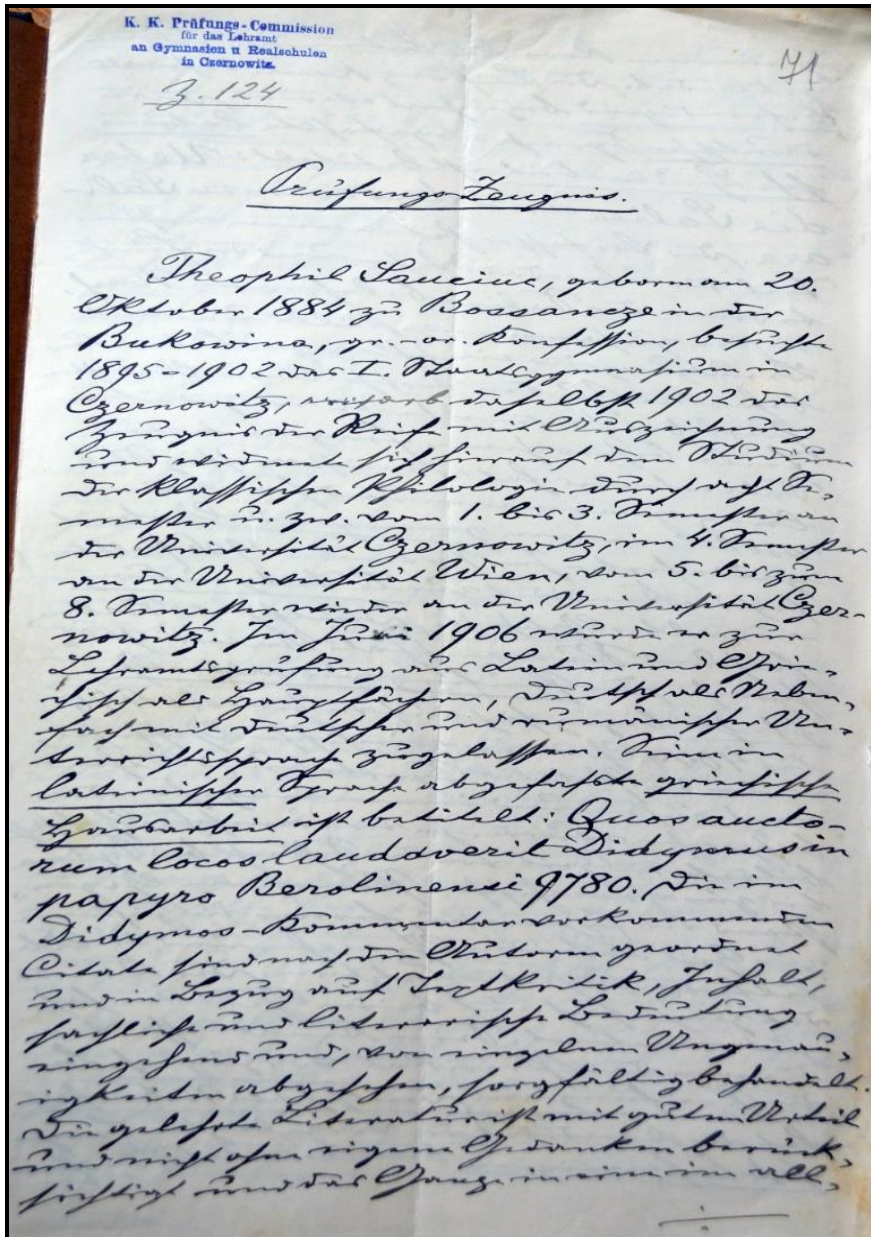 K. K. Prüfungs-Commission
für das Lehramt
an Gymnasien u Realschulen
in Czernowitz.
Z. 124
71
Prüfungs-Zeugnis.
Theophil Sauciuc, geboren am 20.
Oktober 1884 zu Bossancze in der
Bukowina, gr.-or. Konfession, besuchte
1895-1902 das I. Staatsgymnasium in
Czernowitz, erwarb daselbst 1902 das
Zeugnis der Reife mit Auszeichnung
und widmete sich hierauf dem Studium
der klassischen Philologie durch acht Se-
mester u. zw. vom 1. bis 3. Semester an
der Universität Czernowitz, im 4. Semester
an der Universität Wien, vom 5. bis zum
8. Semester wieder an der Universität Czer-
nowitz. Im Juni 1906 wurde er zur
Lehramtsprüfung aus Latein und Grie-
chisch als Hauptfächern, Deutsch als Neben-
fach mit deutscher und rumänischer Un-
terrichtssprache zugelassen. Seine in
lateinischer Sprache abgefaßte griechische
Hausarbeit ist betitelt: Quos aucto-
rum locos laudaverit Didymus in
papyro Berolinensi 9780. Die im
Didymos-Kommentar vorkommenden
Citate sind nach den Autoren geordnet
und in Bezug auf Textkritik, Inhalt,
sachliche und literarische Bedeutung
eingehend und, von einzelnen Ungenau-
igkeiten abgesehen, sorgfältig behandelt.
Die gelehrte Literatur ist mit gutem Urteil
und nicht ohne eigene Gedanken berück-
sichtigt und das Ganze in eine im all-